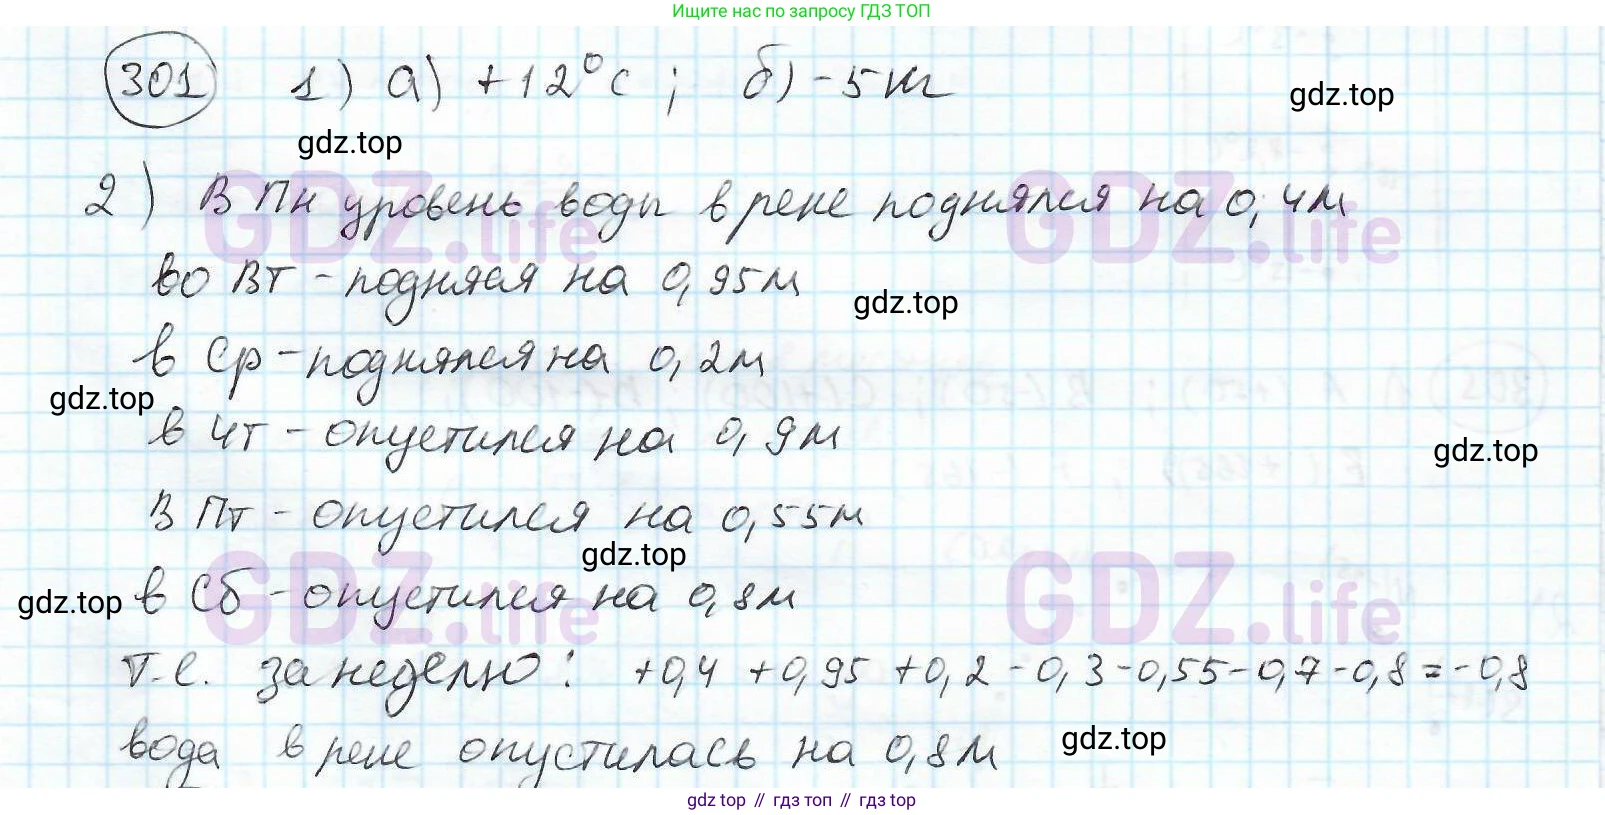 Ищите нас по запросу ГДЗ ТОП
301 1) а) +12°C; б) -5 кг
gdz.top
gdz.top
2) В Пн уровень воды в реке поднялся на 0,4м
GDZ.life GDZ.life
во Вт - поднялся на 0,95м
gdz.top
в Ср - поднялся на 0,2м
gdz.top
в Чт - опустился на 0,9м
gdz.top
В Пт - опустился на 0,55м
gdz.top
GDZ.life GDZ.life
gdz.top в Сб - опустился на 0,8м
т.е. за неделю: +0,4 +0,95 +0,2 -0,3 -0,55 -0,7 -0,8 = -0,8
вода в реке опустилась на 0,8м
gdz.top
gdz top // гдз топ // gdz top